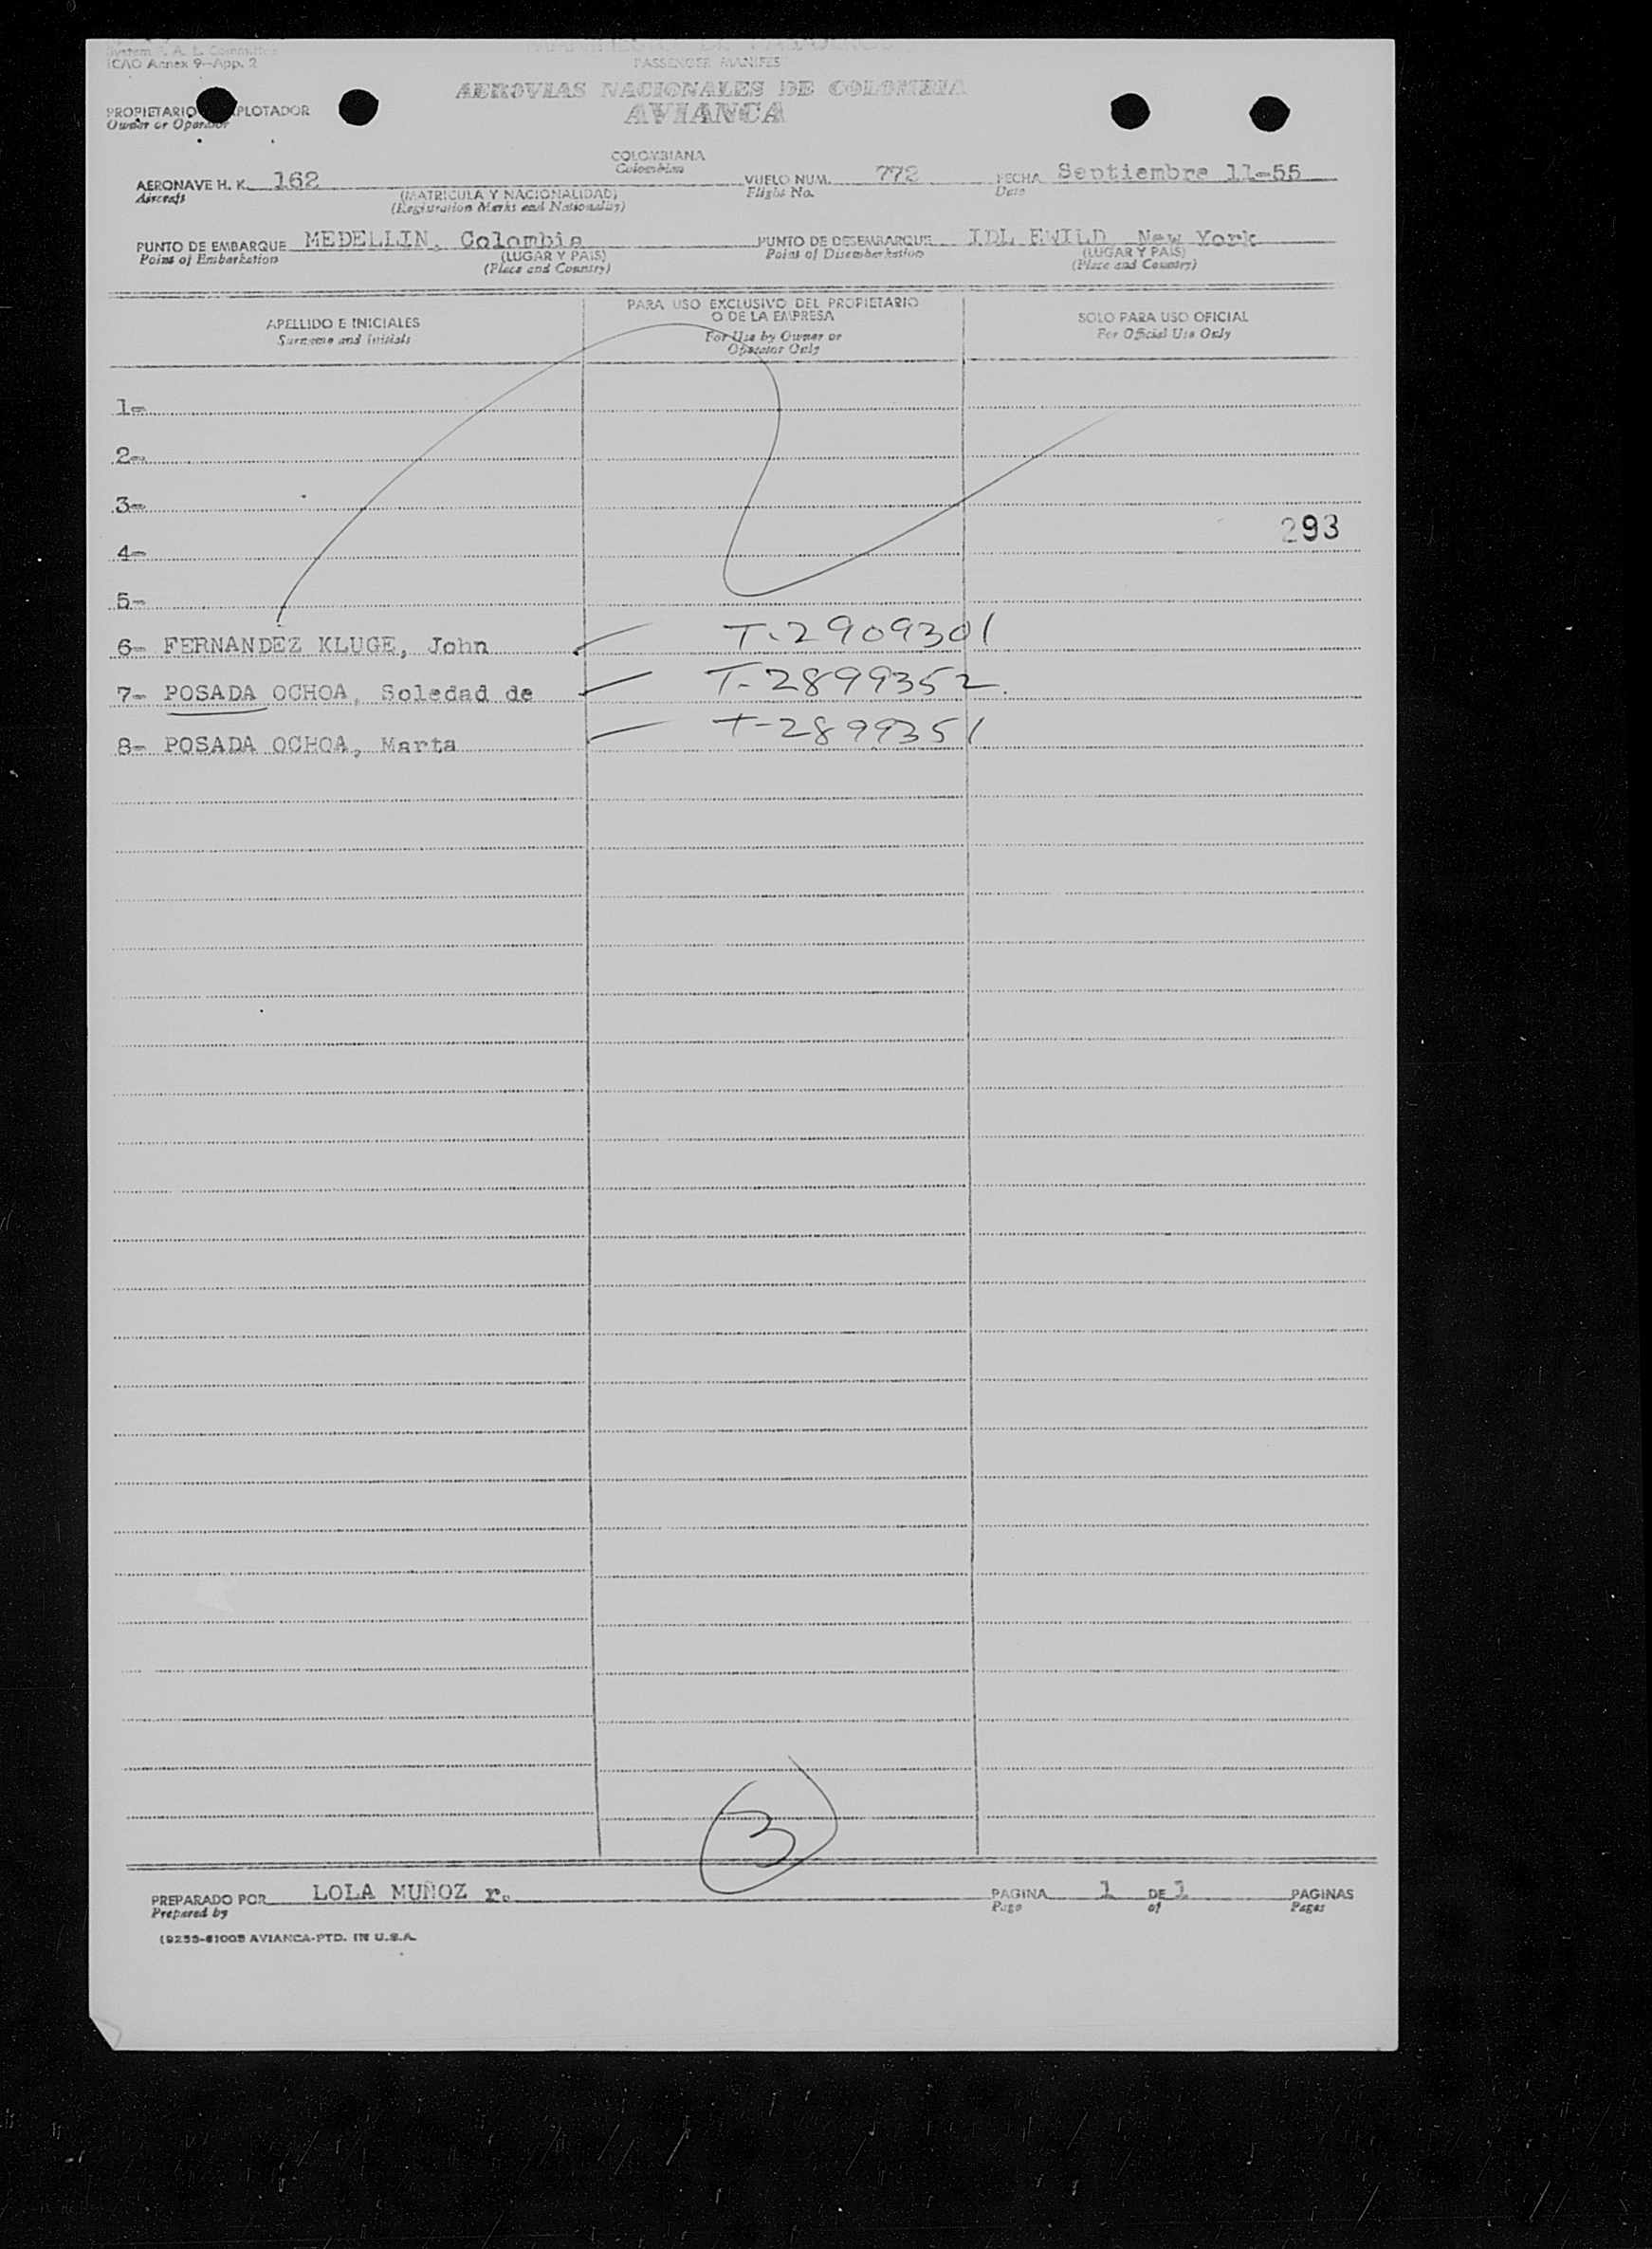 ICAO Annex 9-App. 2
PASSENGER MANIFES
AEROVIAS NACIONALES DE COLOMBIA
AVIANCA
PROPIETARIO PLOTADOR
Owner or Operator
COLOMBIANA
Colombian
AERONAVE H. K. 162 VUELO NUM. 772 FECHA Septiembre 11-55
Aircraft (MATRICULA Y NACIONALIDAD) Flight No. Date
(Registration Marks and Nationality)
PUNTO DE EMBARQUE MEDELLIN, Colombia PUNTO DE DESEMBARQUE IDLEWILD New York
Point of Embarkation (LUGAR Y PAIS) Point of Disembarkation (LUGAR Y PAIS)
(Place and Country) (Place and Country)
APELLIDO E INICIALES
Surname and initials
PARA USO EXCLUSIVO DEL PROPIETARIO
O DE LA EMPRESA
For Use by Owner or
Operator Only
SOLO PARA USO OFICIAL
For Official Use Only
1-
2-
3-
293
4-
5-
6- FERNANDEZ KLUGE, John T-2909301
7- POSADA OCHOA, Soledad de T-2899352
8- POSADA OCHOA, Marta T-2899351
3
PREPARADO POR LOLA MUÑOZ r. PAGINA 1 DE 1 PAGINAS
Prepared by Page of Pages
AVIANCA-PTD. IN U.S.A.